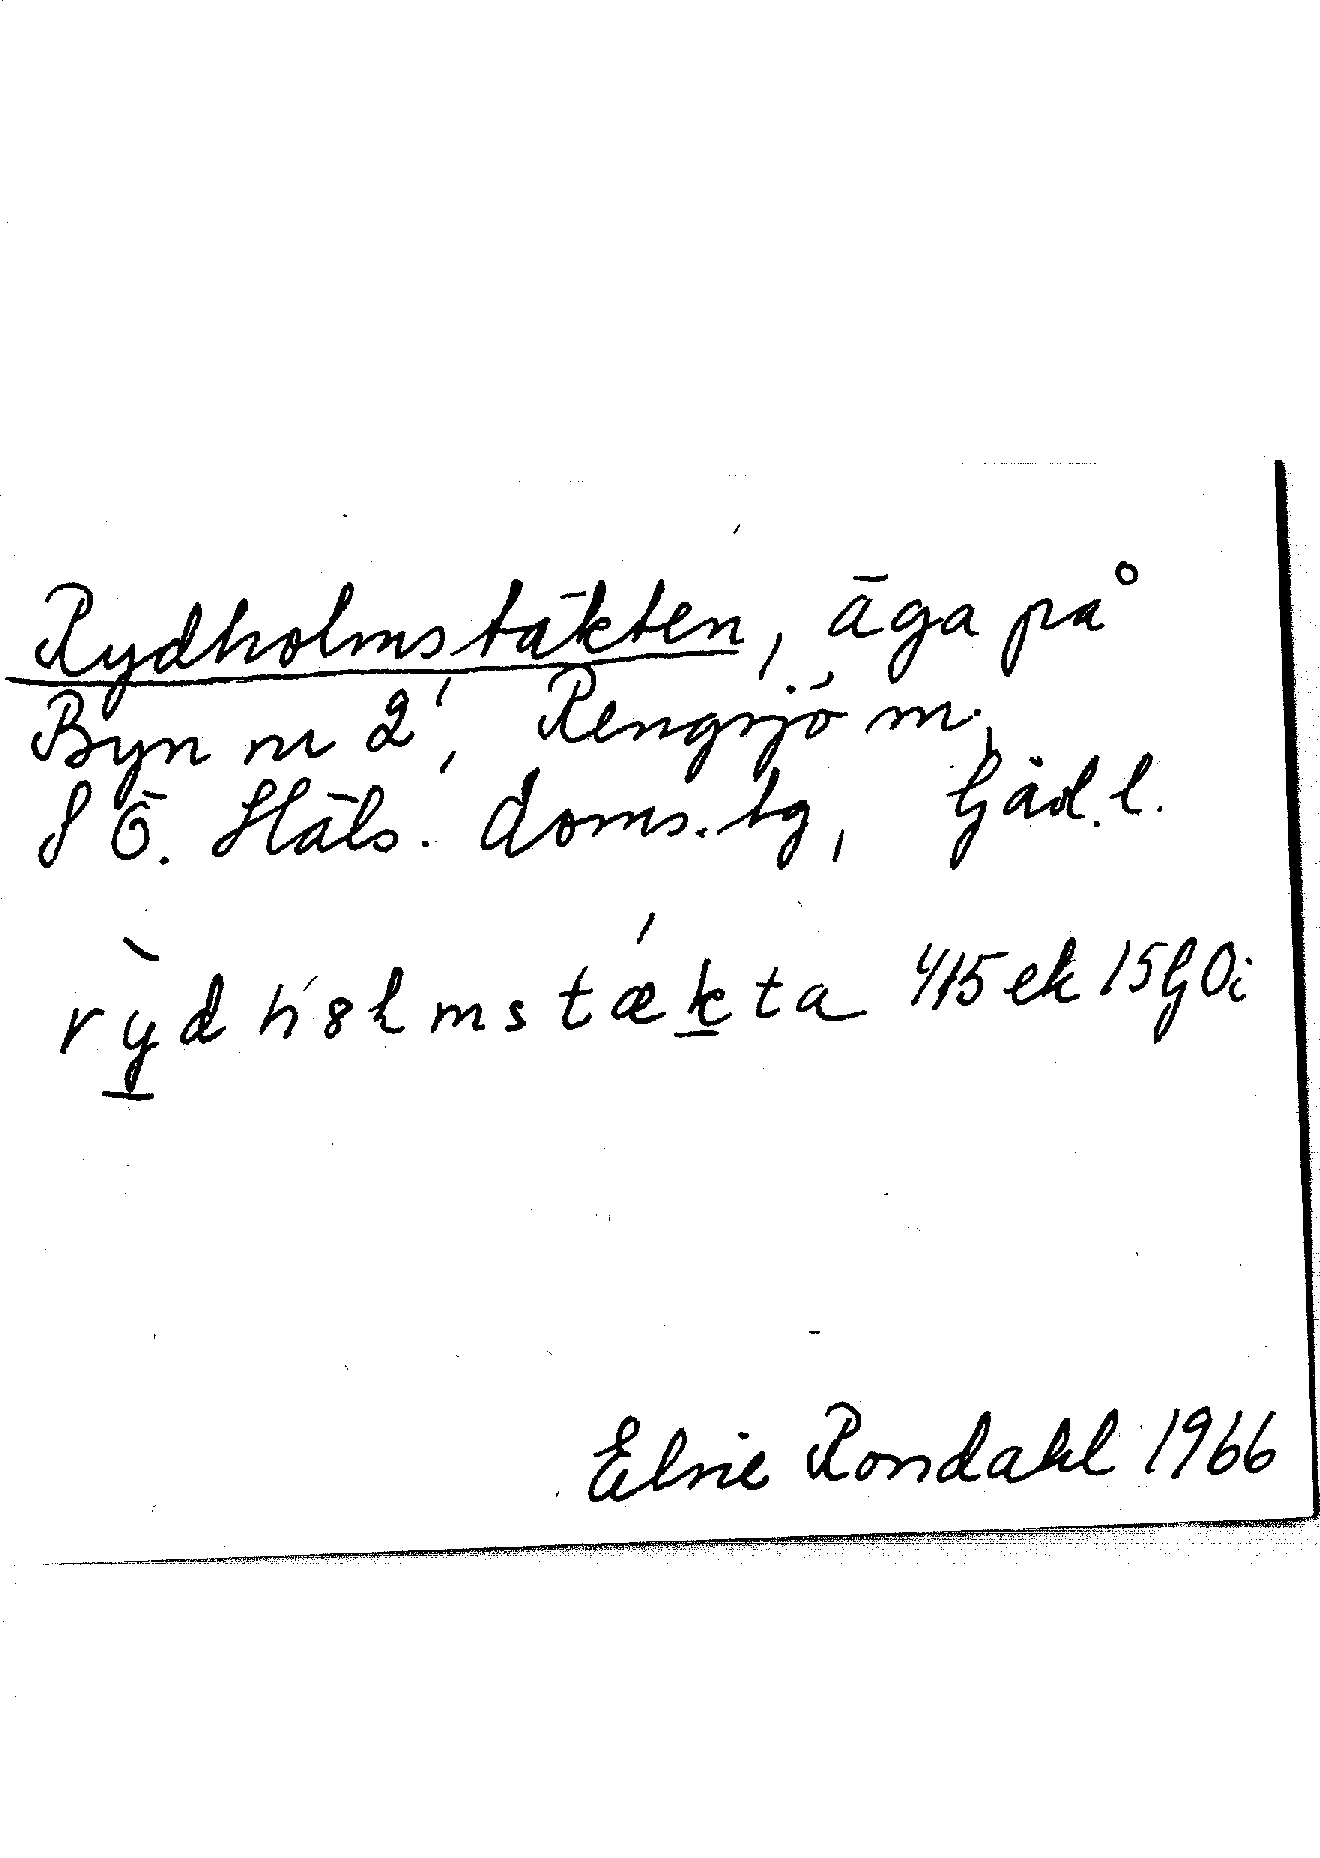 Rydholmstäkten, äga på
Byn nr 2, Rengsjö m.
S Ö. Häls. doms. tg, Gäd.l.
rydh8lmstækta
Elsie Rondahl 1966